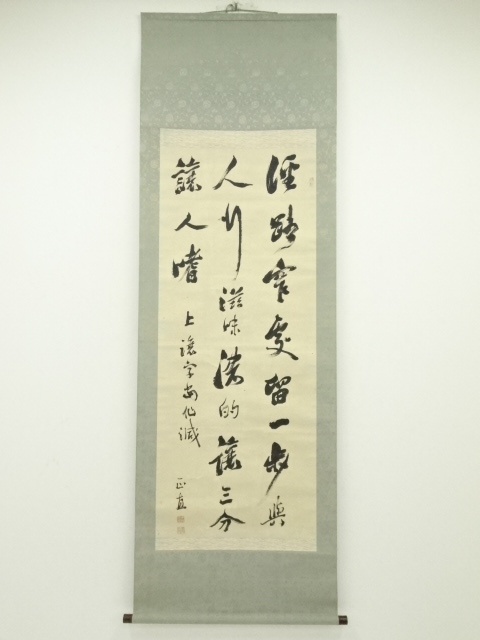 徑路窄處留一步與
人行滋味濃的讓三分
讓人嗜
上讓字當作減
正直